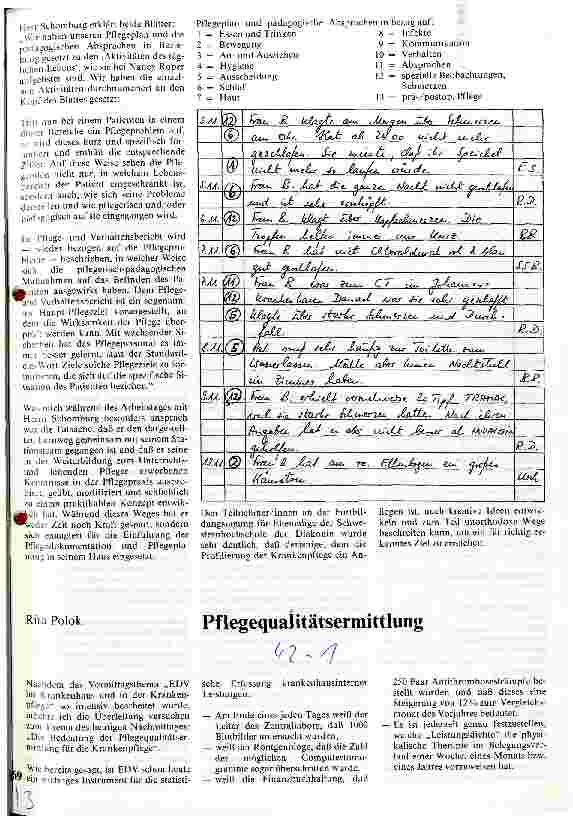 Herr Schomburg erklärt beide Blätter:
„Wir haben unseren Pflegeplan und die
pädagogischen Absprachen in Bezie-
hung gesetzt zu den ‚Aktivitäten des täg-
lichen Lebens', wie sie bei Nancy Roper
aufgelistet sind. Wir haben die einzel-
nen Aktivitäten durchnumeriert an den
Kopf des Blattes gesetzt:
Tritt nun bei einem Patienten in einem
dieser Bereiche ein Pflegeproblem auf,
so wird dieses kurz und spezifisch for-
muliert und enthält die entsprechende
Ziffer. Auf diese Weise sehen die Pfle-
genden nicht nur, in welchem Lebens-
bereich der Patient eingeschränkt ist,
sondern auch, wie sich seine Probleme
darstellen und wie pflegerisch und/oder
pädagogisch auf sie eingegangen wird.
Im Pflege- und Verhaltensbericht wird
— wieder bezogen auf die Pflegepro-
bleme — beschrieben, in welcher Weise
sich die pflegerisch-pädagogischen
Maßnahmen auf das Befinden des Pa-
tienten ausgewirkt haben. Dem Pflege-
und Verhaltensbericht ist ein sogenann-
tes Haupt-Pflegeziel vorangestellt, an
dem die Wirksamkeit der Pflege über-
prüft werden kann. Mit wachsender Si-
cherheit hat das Pflegepersonal es im-
mer besser gelernt, statt der Standard-
Ziele solche Pflegeziele zu for-
mulieren, die sich auf die spezifische Si-
tuation des Patienten beziehen."
Was mich während des Arbeitstages mit
Herrn Schomburg besonders ansprach
war die Tatsache, daß er den dargestell-
ten Lernweg gemeinsam mit seinem Sta-
tionsteam gegangen ist und daß er seine
in der Weiterbildung zum Unterrichts-
und leitenden Pfleger erworbenen
Kenntnisse in der Pflegepraxis auspro-
biert, geübt, modifiziert und schließlich
zu einem praktikablen Konzept entwik-
kelt hat. Während dieses Weges hat er
weder Zeit noch Kraft gespart, sondern
sich ermutigen für die Einführung der
Pflegedokumentation und Pflegepla-
nung in seinem Haus eingesetzt.
Pflegeplan und pädagogische Absprachen in bezug auf:
1 = Essen und Trinken
2 = Bewegung
3 = An- und Ausziehen
4 = Hygiene
5 = Ausscheidung
6 = Schlaf
7 = Haut
8 = Infekte
9 = Kommunikation
10 = Verhalten
11 = Absprachen
12 = spezielle Beobachtungen,
Schmerzen
13 = prä-/postop. Pflege
5.11. (12) Frau B. klagt am Morgen über Schmerzen
(6) am Ohr. Hat ab 24.00 nicht mehr
geschlafen. Sie meinte, daß ihr Speichel
(1) nicht mehr so laufen würde. E.S.
5.11. (6) Frau B. hat die ganze Nacht nicht geschlafen
und ist sehr erschöpft. R.D.
6.11. (12) Frau B. klagt über Kopfschmerzen. Die
Tropfen helfen immer nur kurz. B.B.
7.11. (6) Frau B. hat mit Chloraldurat
gut geschlafen.
7.11. (11) Frau B. war zum CT im Johanniter-
(12) krankenhaus. Danach war sie sehr geschafft
(5) klagte über starke Schmerzen und Durch-
fall. R.D.
(5) Hat sehr häufig zur Toilette zum
Wasserlassen. Möchte aber keinen Nachtstuhl
im Zimmer haben. B.B.
9.11. (12) Frau B. erhielt 20 Tropf. TRAMAL,
weil sie starke Schmerzen hatte. Nach ihren
Angaben hat es aber nicht besser als
geholfen. R.D.
(7) Frau B. hat am re. Ellenbogen ein großes
Hämatom.
Den Teilnehmer/innen an der Fortbil-
dungstagung für Ehemalige der Schwe-
sternhochschule der Diakonie wurde
sehr deutlich, daß derjenige, dem die
Profilierung der Krankenpflege ein An-
liegen ist, auch kreative Ideen entwic-
keln und zum Teil unorthodoxe Wege
beschreiten kann, um ein für richtig er-
kanntes Ziel zu erreichen.
Rita Polok
Pflegequalitätsermittlung
42-1
Nachdem das Vormittagsthema „EDV
im Krankenhaus und in der Kranken-
pflege" so intensiv bearbeitet wurde,
möchte ich die Überleitung versuchen
zum Thema des heutigen Nachmittages:
„Die Bedeutung der Pflegequalitätser-
mittlung für die Krankenpflege".
Wie bereits gesagt, ist EDV schon heute
ein wichtiges Instrument für die statisti-
sche Erfassung krankenhausinterner
Leistungen.
— Am Ende eines jeden Tages weiß der
Leiter des Zentrallabors, daß 1000
Blutbilder untersucht wurden,
— weiß der Röntgenologe, daß die Zahl
der möglichen Computertomo-
gramme sogar überschritten wurde,
— weiß die Finanzbuchhaltung, daß
250 Paar Antithrombosestrümpfe be-
stellt wurden und daß dieses eine
Steigerung von 12 % zum Vergleichs-
monat des Vorjahres bedeutet.
— Es ist jederzeit genau festzustellen,
welche „Leistungsdichte" die physi-
kalische Therapie im Belegungsver-
lauf einer Woche, eines Monats bzw.
eines Jahres vorzuweisen hat.
69
13